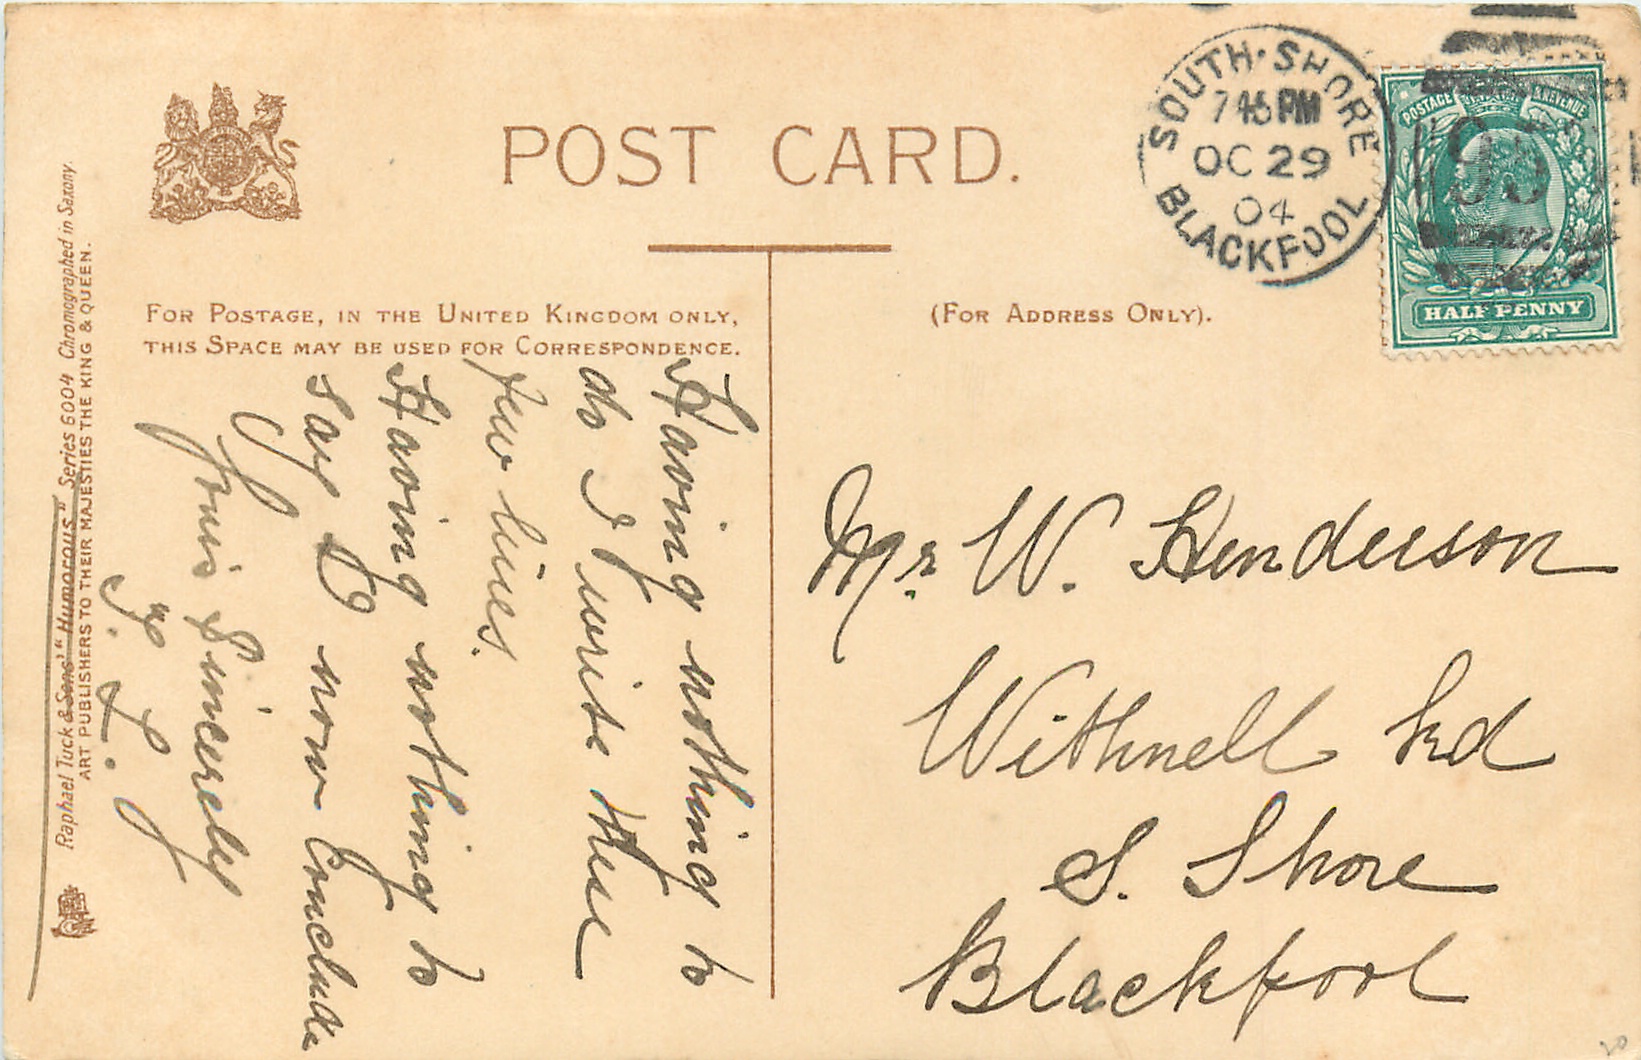 POST CARD.
FOR POSTAGE, IN THE UNITED KINGDOM ONLY,
THIS SPACE MAY BE USED FOR CORRESPONDENCE.
(FOR ADDRESS ONLY).
SOUTH·SHORE
PM
OC 29
04
BLACKPOOL
POSTAGE & REVENUE
HALF PENNY
Having nothing to
do I write these
few lines.
Having nothing to
say I now Conclude
Yours Sincerely
Mr W. Henderson
Withnell Rd
S. Shore
Blackpool
Raphael Tuck & Sons' "Humorous" Series 6004 Chromographed in Saxony.
ART PUBLISHERS TO THEIR MAJESTIES THE KING & QUEEN.